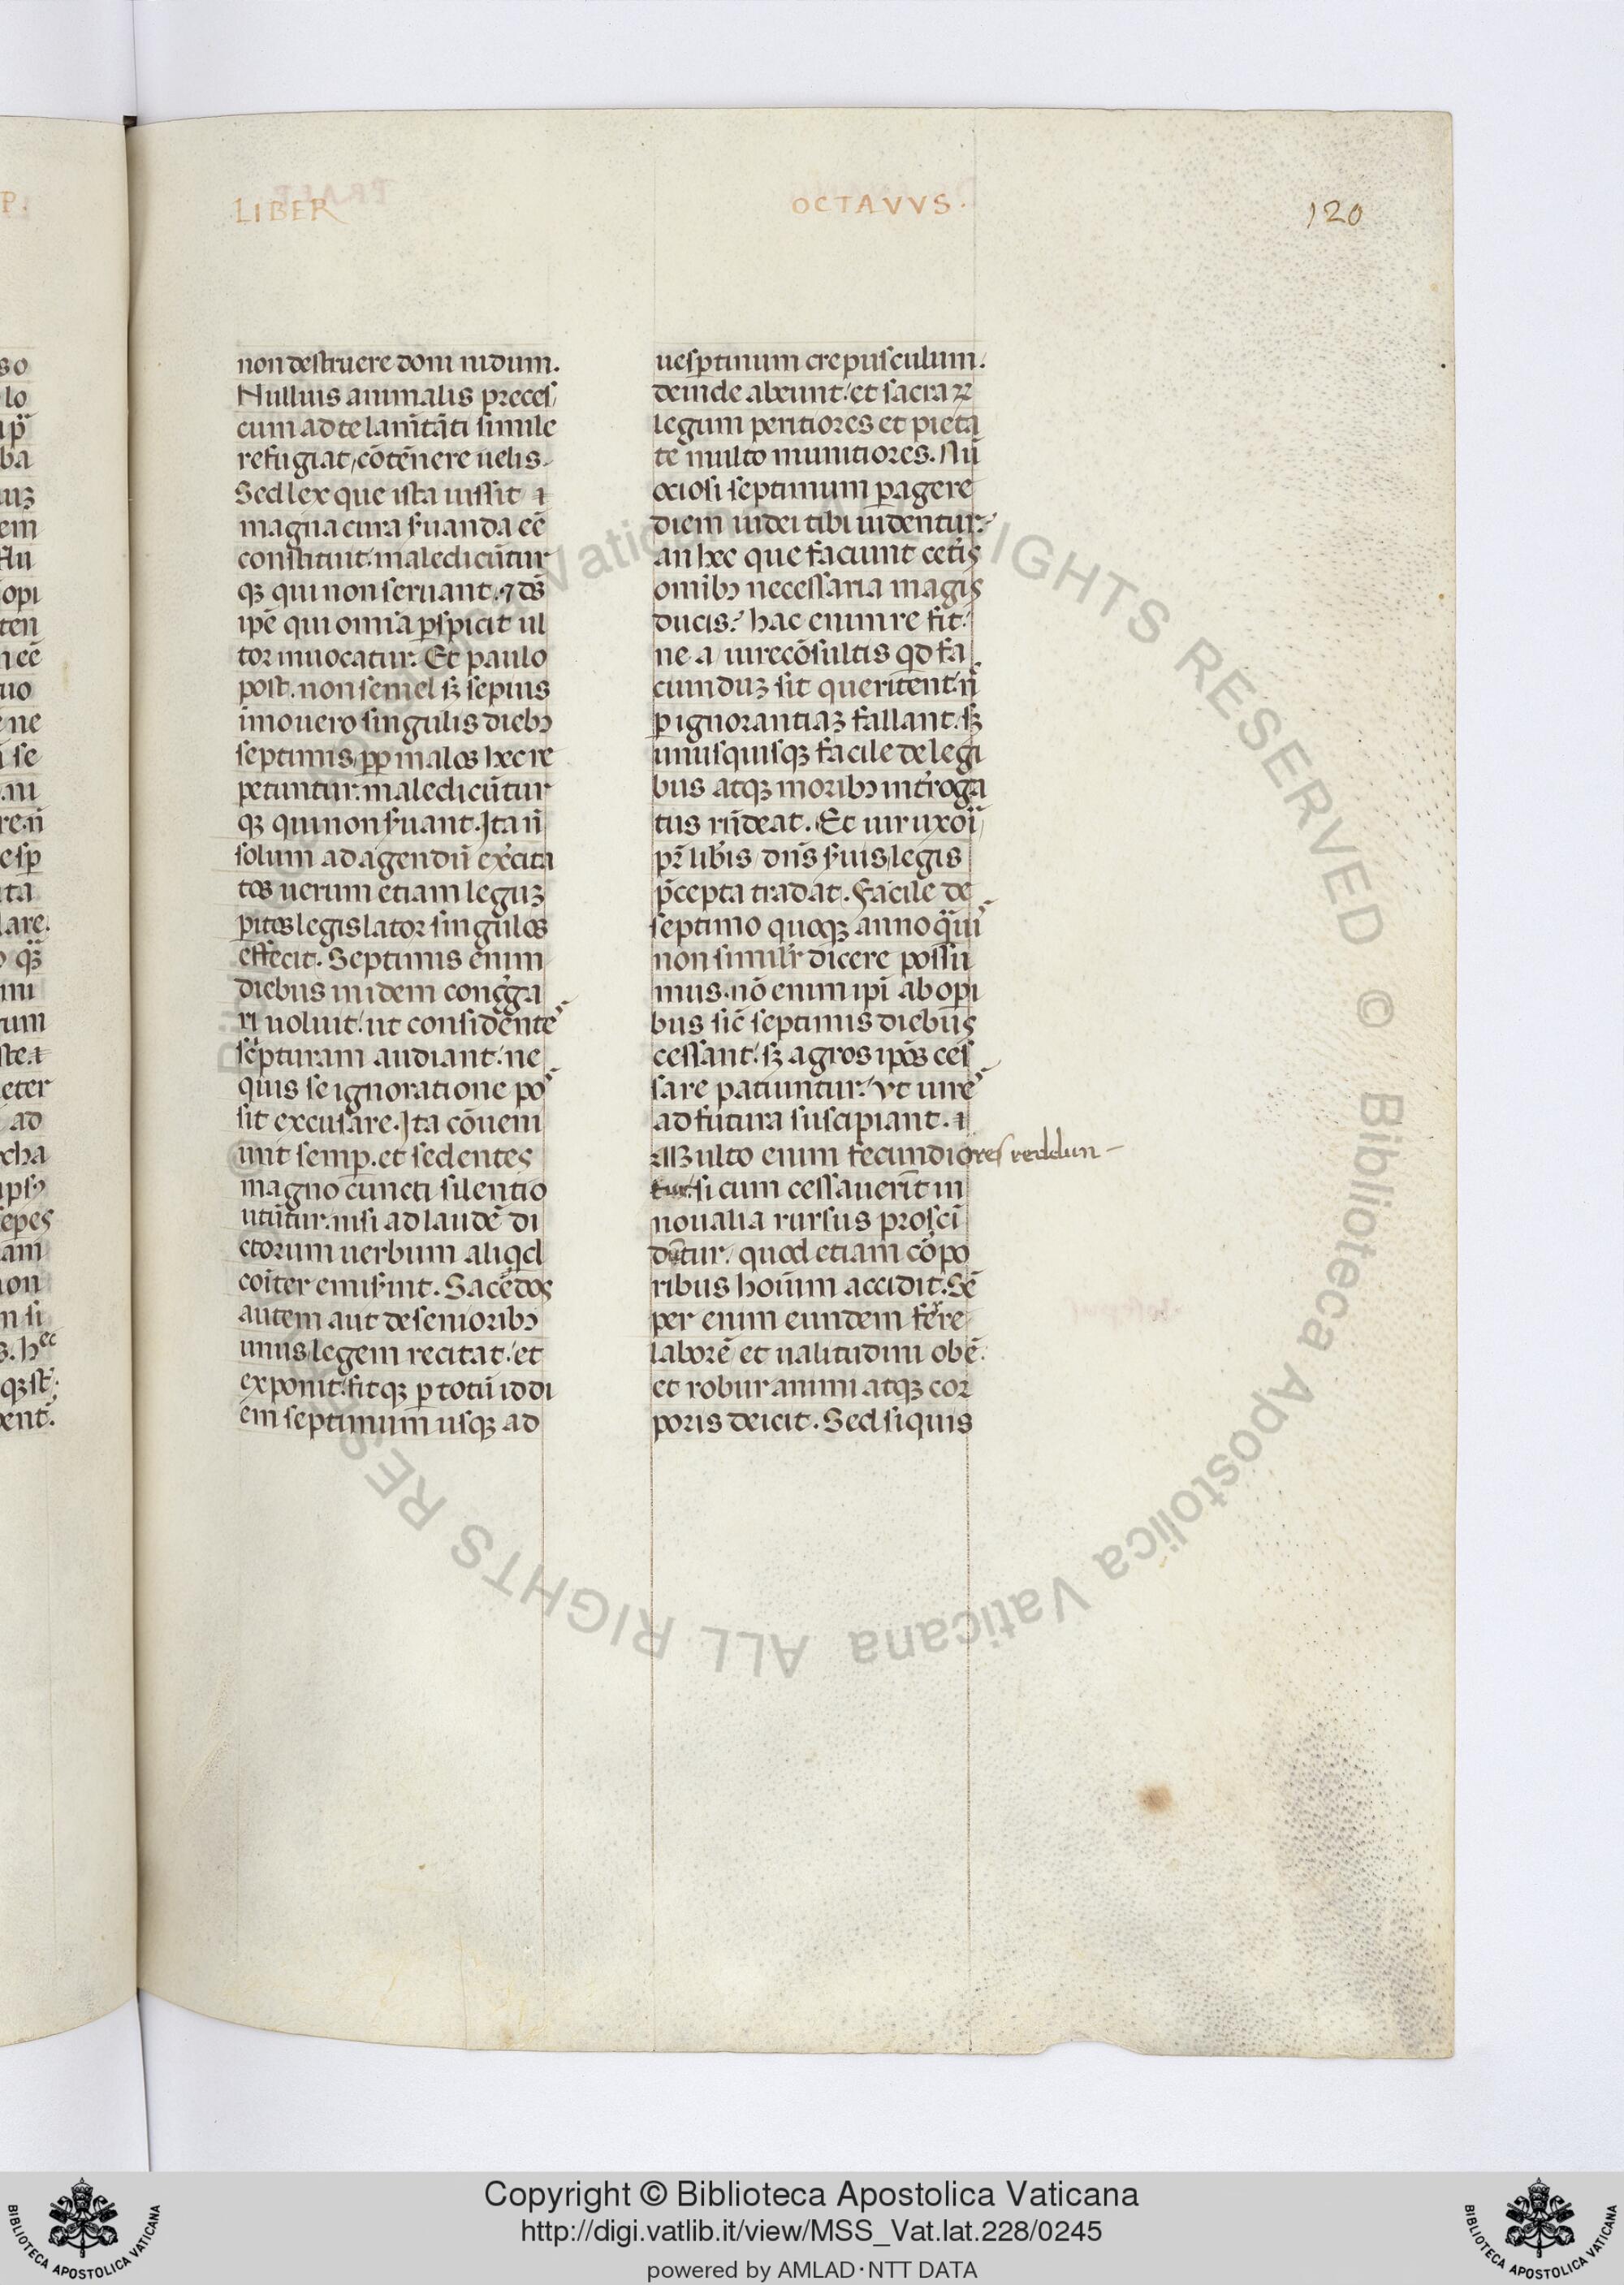 LIBER
OCTAVVS.
120
non destruere dom nidum.
Nullius animalis preces
cum ad te lamītāti simile
refugiat, cōtēnere uelis.
Sed lex que ista iussit ⁊
magna cura ẜuanda eē
constituit. maledicūtur
qꝫ qui non seruant. ⁊ dˢ
ipē qui omīa ꝑspicit ul
tor inuocatur. Et paulo
post. non semel sꝫ sepius
imouero singulis diebꝰ
septimis ꝓp malos hec re
petuntur. maledicūtur
qꝫ qui non ẜuant. Ita ñ
solum ad agendū ex̄cita
tos uerum etiam leguꝫ
ꝑitos legislator singulos
effecit. Septimis enim
diebus in idem cong̃ga
ri uoluit. ut considentes
sc̃pturam audiant. ne
quis se ignoratione pos
sit excusare. Ita cōueni
unt semꝑ. et sedentes
magno cuncti silentio
utūtur. nisi ad laudē di
ctorum uerbum aliqd
coīter emiẜint. Sac̄edos
autem aut de senioribꝰ
unus legem recitat. et
exponit. fitqꝫ ꝑ totū id di
em septimum usqꝫ ad
uesꝑtinum crepusculum.
deinde abeunt. et sacraꝝ
legum peritiores et pieta
te multo munitiores. Nū
ociosi septimum ꝑagere
diem iudei tibi uidentur.
an hec que faciunt cet̃is
omībꝰ necessaria magis
ducis. hac enim re fit.
ne a iurecōsultis qd fa
ciunduꝫ sit queritent. ñ
ꝑ ignorantiaꝫ fallant. sꝫ
unusquisqꝫ facile de legi
bus atqꝫ moribꝰ int̃roga
tus rñdeat. Et uir uxori
pr̃ libīs dñs ẜuis legis
p̄cepta tradat. Facile de
septimo quoqꝫ anno q̄uis
non simil̃r dicere possu
mus. nō enim ip̄i ab opi
bus sic̄ septimis diebus
cessant. sꝫ agros ip̄os ces
sare patiuntur. Vt uires
ad futura suscipiant. ⁊
Multo enim fecundiores reddun
tur. si cum cessauerīt in
noualia rursus prosci
dētur. quod etiam cōpo
ribus hoīum accidit. Sē
per enim eundem ferre
laborē et ualitudini obē.
et robur animi atqꝫ cor
poris deicit. Sed siquis
Copyright © Biblioteca Apostolica Vaticana
http://digi.vatlib.it/view/MSS_Vat.lat.228/0245
powered by AMLAD·NTT DATA